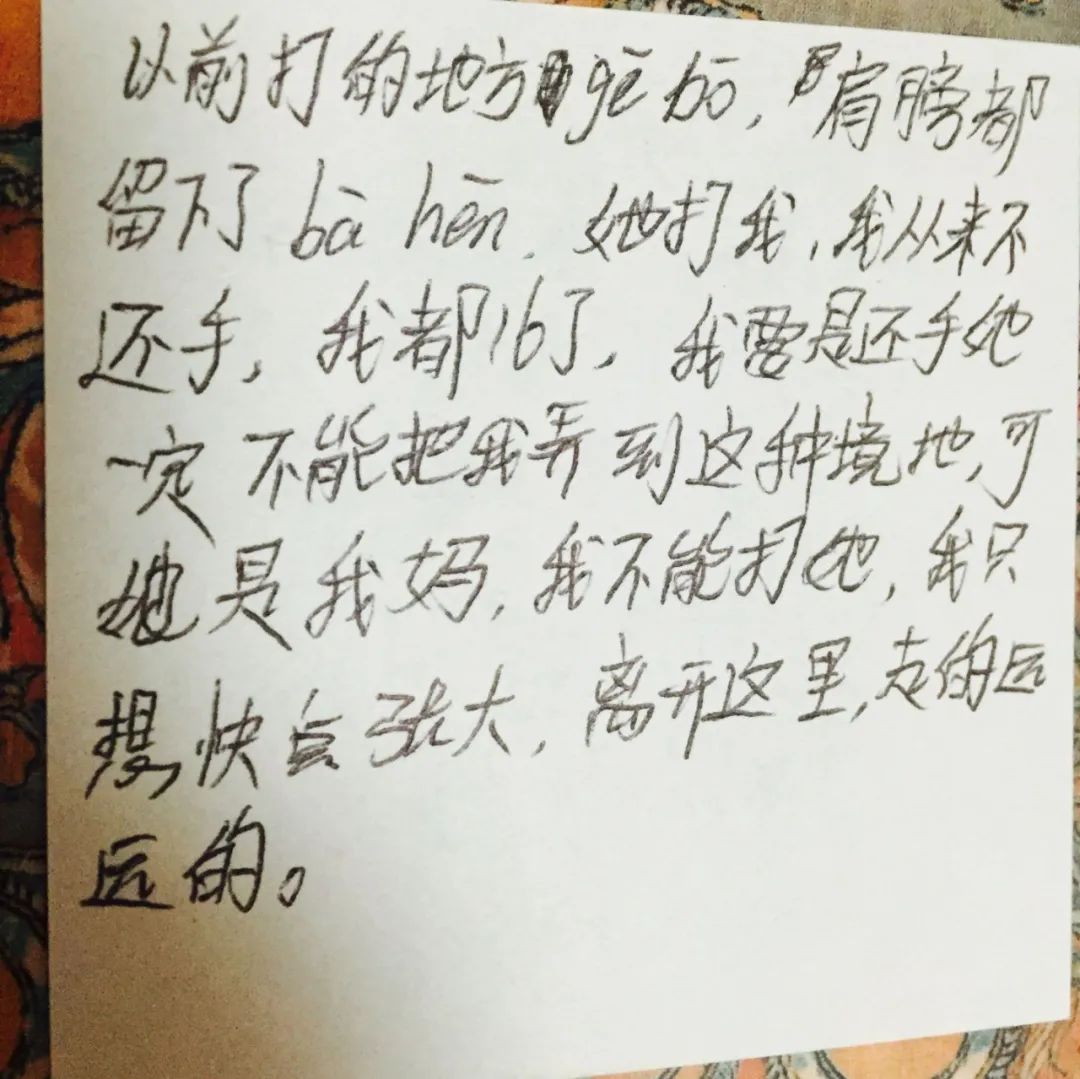 以前打的地方gē bō，肩膀都
留下了 bā hén．她打我，我从来不
还手，我都16了，我要是还手她
一定不能把我弄到这种境地，可
她是我妈，我不能打她，我只
想快点张大，离开这里，走的远
远的。